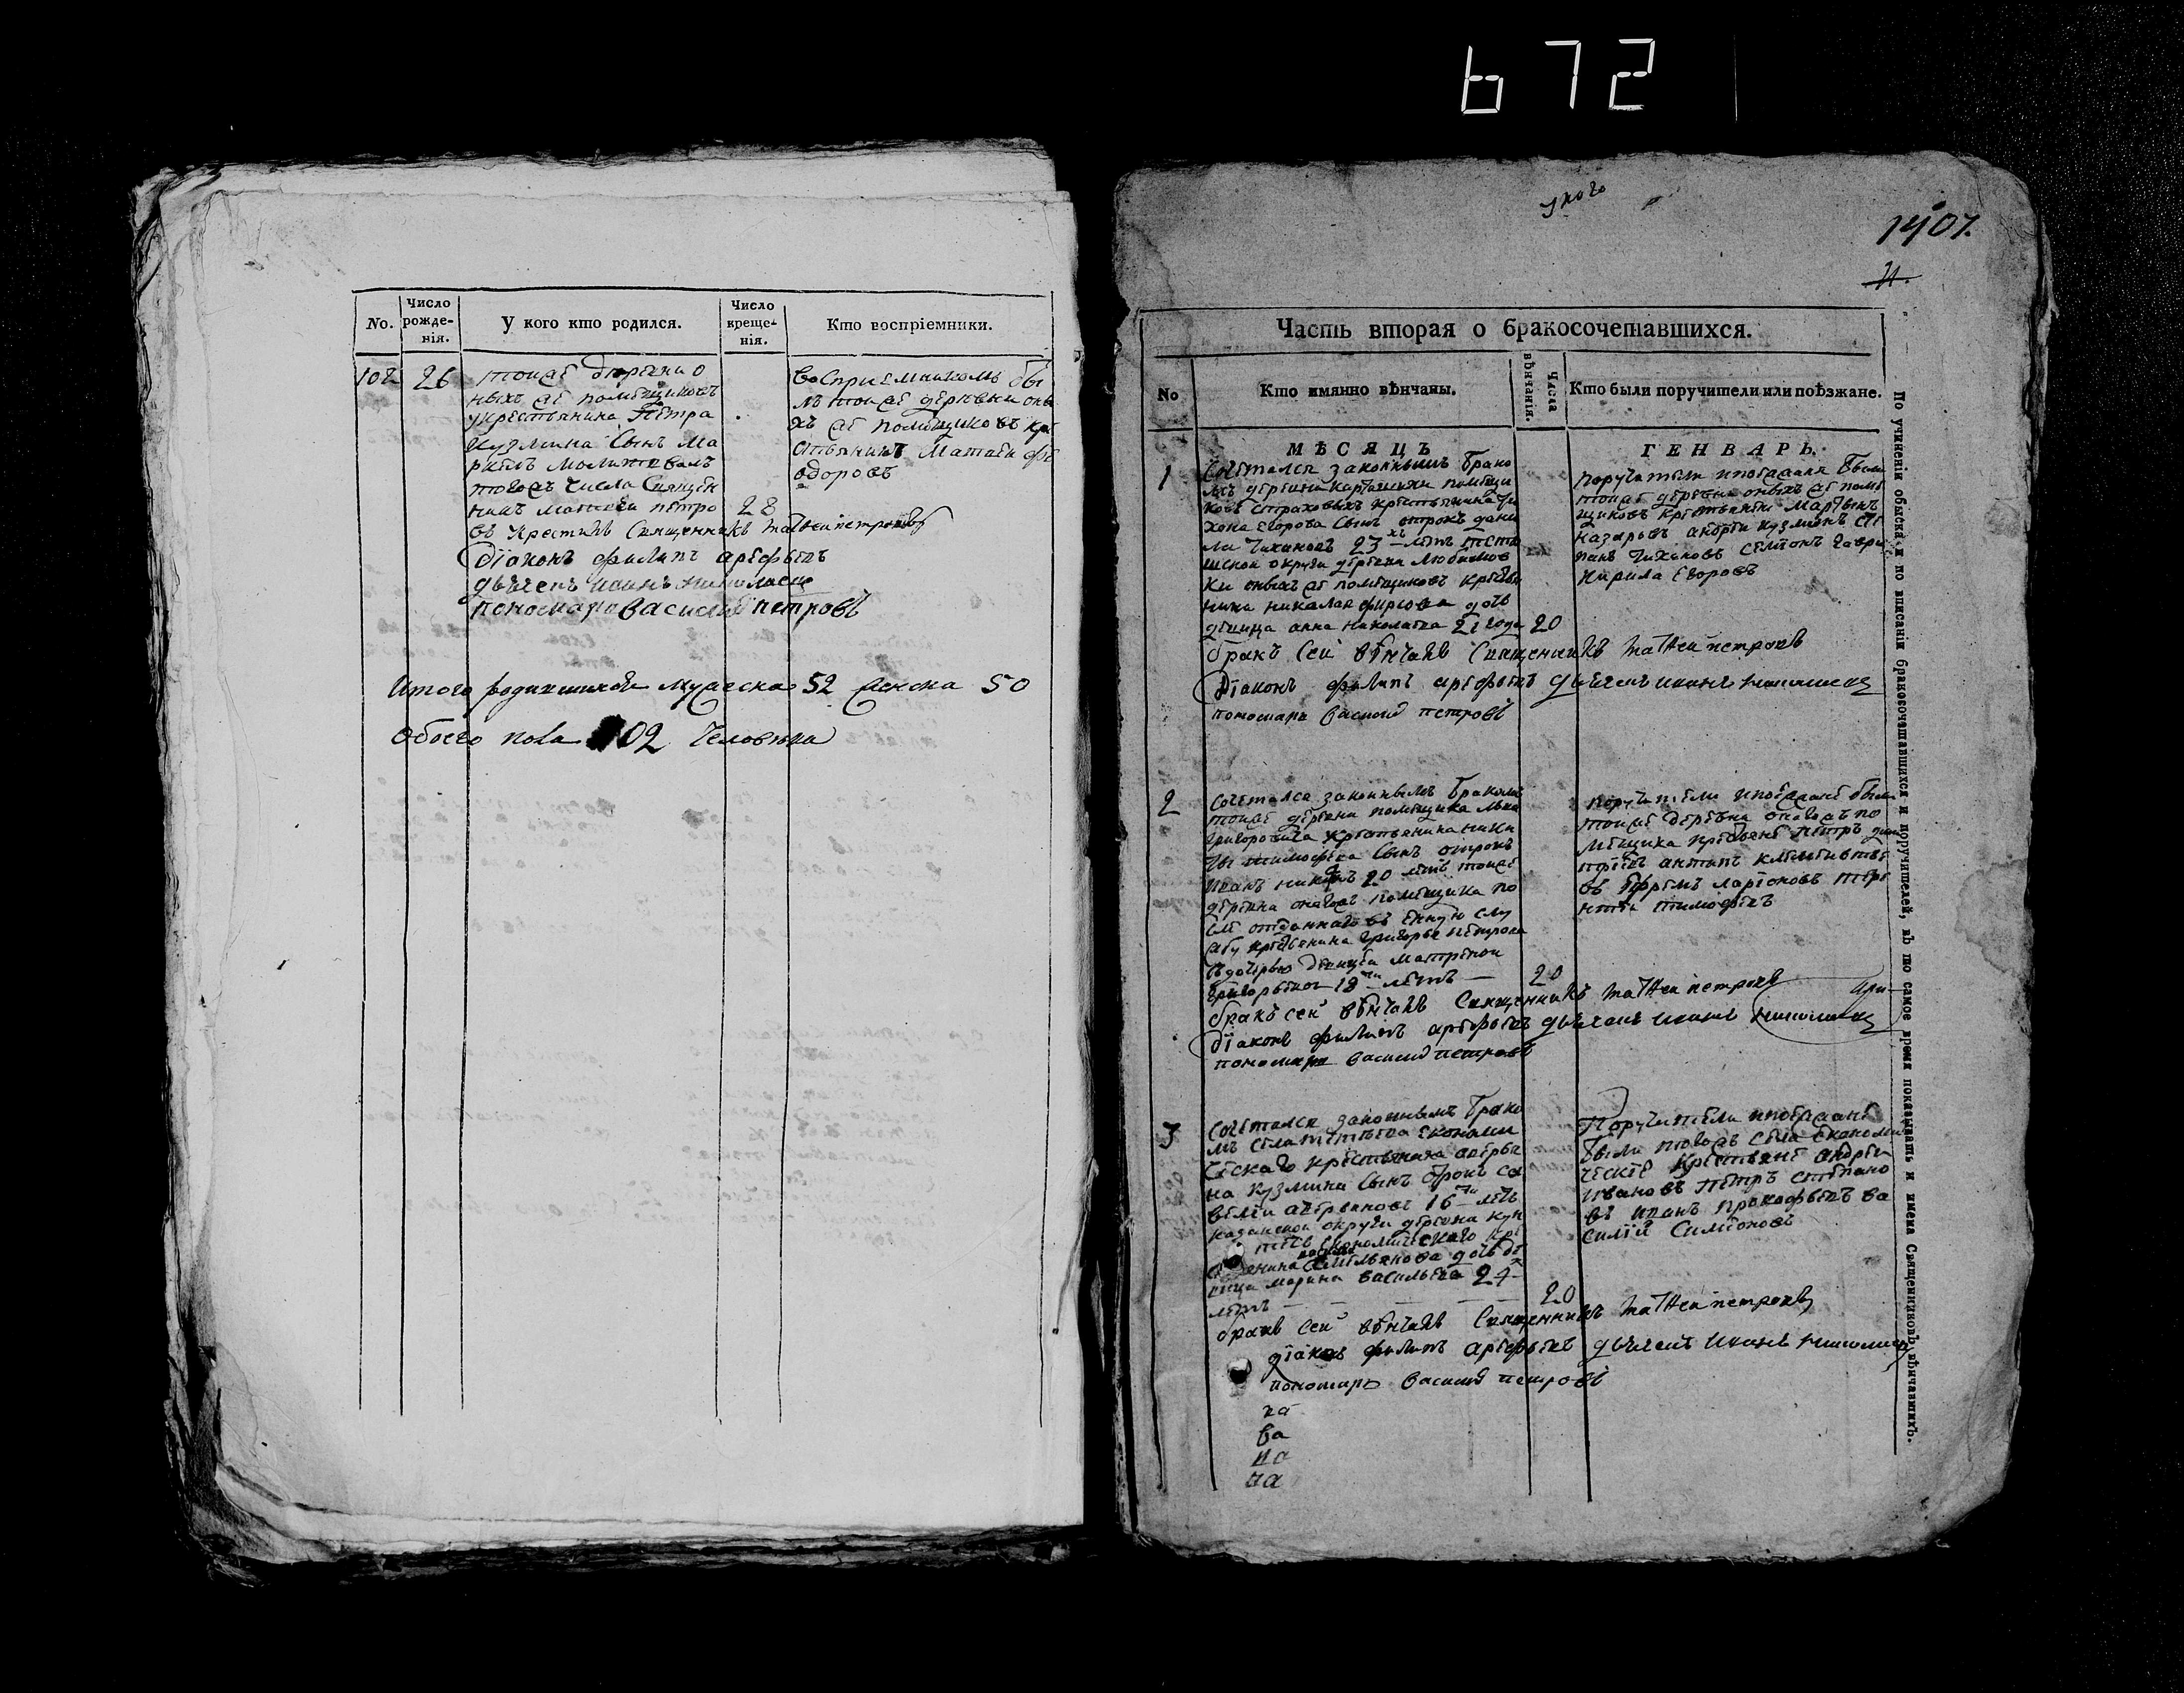 672
1407.
No.
Число рожде-нія.
У кого кто родился.
Число креще-нія.
Кто воспріемники.
102 26
ныхъ же помѣщиковъ
укрестьянина Петра
Кузмина сынъ Ма
молитвовалъ
тогожъ числа Священ
никъ Матвеи петро 28
въ Крестилъ Священникъ матвеи петровъ
Діаконъ филипъ арефьевъ
дьячекъ иванъ николаевъ
пономарь василей петровъ
воспріемникомъ бы
лъ тоеже деревни оны
хъ же помѣщиковъ кре
стьянинъ Матвеи фе
одоровъ
Итого родившихся мужеска 52 женска 50
обоего пола 102 человека
Часть вторая о бракосочетавшихся.
No
Кто имянно вѣнчаны.
Числа вѣнчанія.
Кто были поручители или поѣзжане.
МѢСЯЦЪ ГЕНВАРЬ.
1
Сочетался законнымъ брако
мъ деревни помѣщи
ковъ Страховыхъ крестьянина Ти
хона Егорова сынъ отрокъ дани
ла Тихоновъ 23 хъ летъ
округи деревни
ки оныхъ же помѣщиковъ крестья
нина николая фирсова дочь
девица анна николаева 21 года 20
бракъ сей вѣнчалъ Священникъ матвеи петровъ
Діаконъ филипъ арефьевъ дьячекъ иванъ николаевъ
пономарь василей петровъ
поручители ипоезжаня были
тоеже деревни оныхъ же поме
щиковъ крестьяне Мартынъ
назаровъ андреи кузминъ сте
панъ Тихоновъ семионъ гаври
кирила Егоровъ
2
сочетался законнымъ бракомъ
тоеже деревни помѣщика льва
григоровича крестьянина ники
ты тимофеева сынъ отрокъ
иванъ никитинъ 20 летъ тоеже
деревни оногожъ помѣщика по
сле отданнаго въ
жбу крестьянина григорья петрова
съ дочерью девицею матреною
григорьевою 18 ти летъ 20
бракъ сей вѣнчалъ Священникъ матвеи петровъ
Діаконъ филипъ арефьевъ дьячекъ иванъ николаевъ
пономарь василей петровъ
поручители ипоезжане были
тоеже деревни оногожъ по
мѣщика крестьяне петръ дми
тріевъ антипъ клементьте
въ Ефремъ ларіоновъ тере
нтеи тимофеевъ
3
сочетался законнымъ брако
мъ села економи
ческаго крестьянина аверья
на кузмина сынъ отрокъ са
велеи аверьяновъ 16 ти летъ
казанской округи деревни
економическаго кре
Емельянова дочь де
вица марина васильева 24
летъ 20
бракъ сей вѣнчалъ Священникъ матвеи петровъ
діаконъ филипъ арефьевъ дьячекъ иванъ николаевъ
пономарь василей петровъ
Поручители ипоезжане
были тогожъ села економи
ческіе крестьяне андреи
ивановъ петръ степано
въ иванъ прокофьевъ ва
силіи Симіоновъ
ка
ва
на
ча
По учиненіи обыска и по вписаніи бракосочетавшихся и поручителей, въ то самое время показывать и имена Священниковъ вѣнчавшихъ.